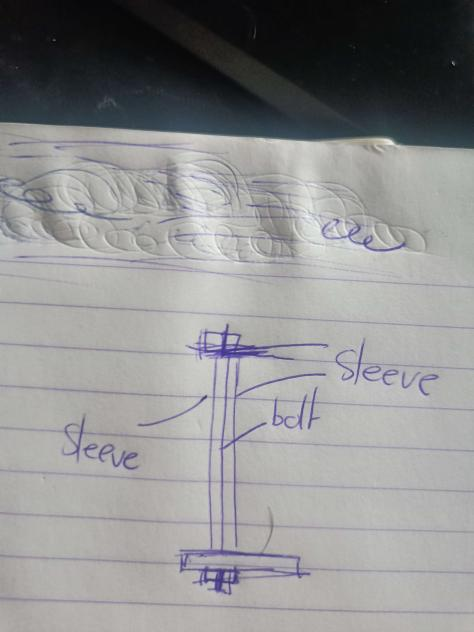 Sleeve
bolt
Sleeve